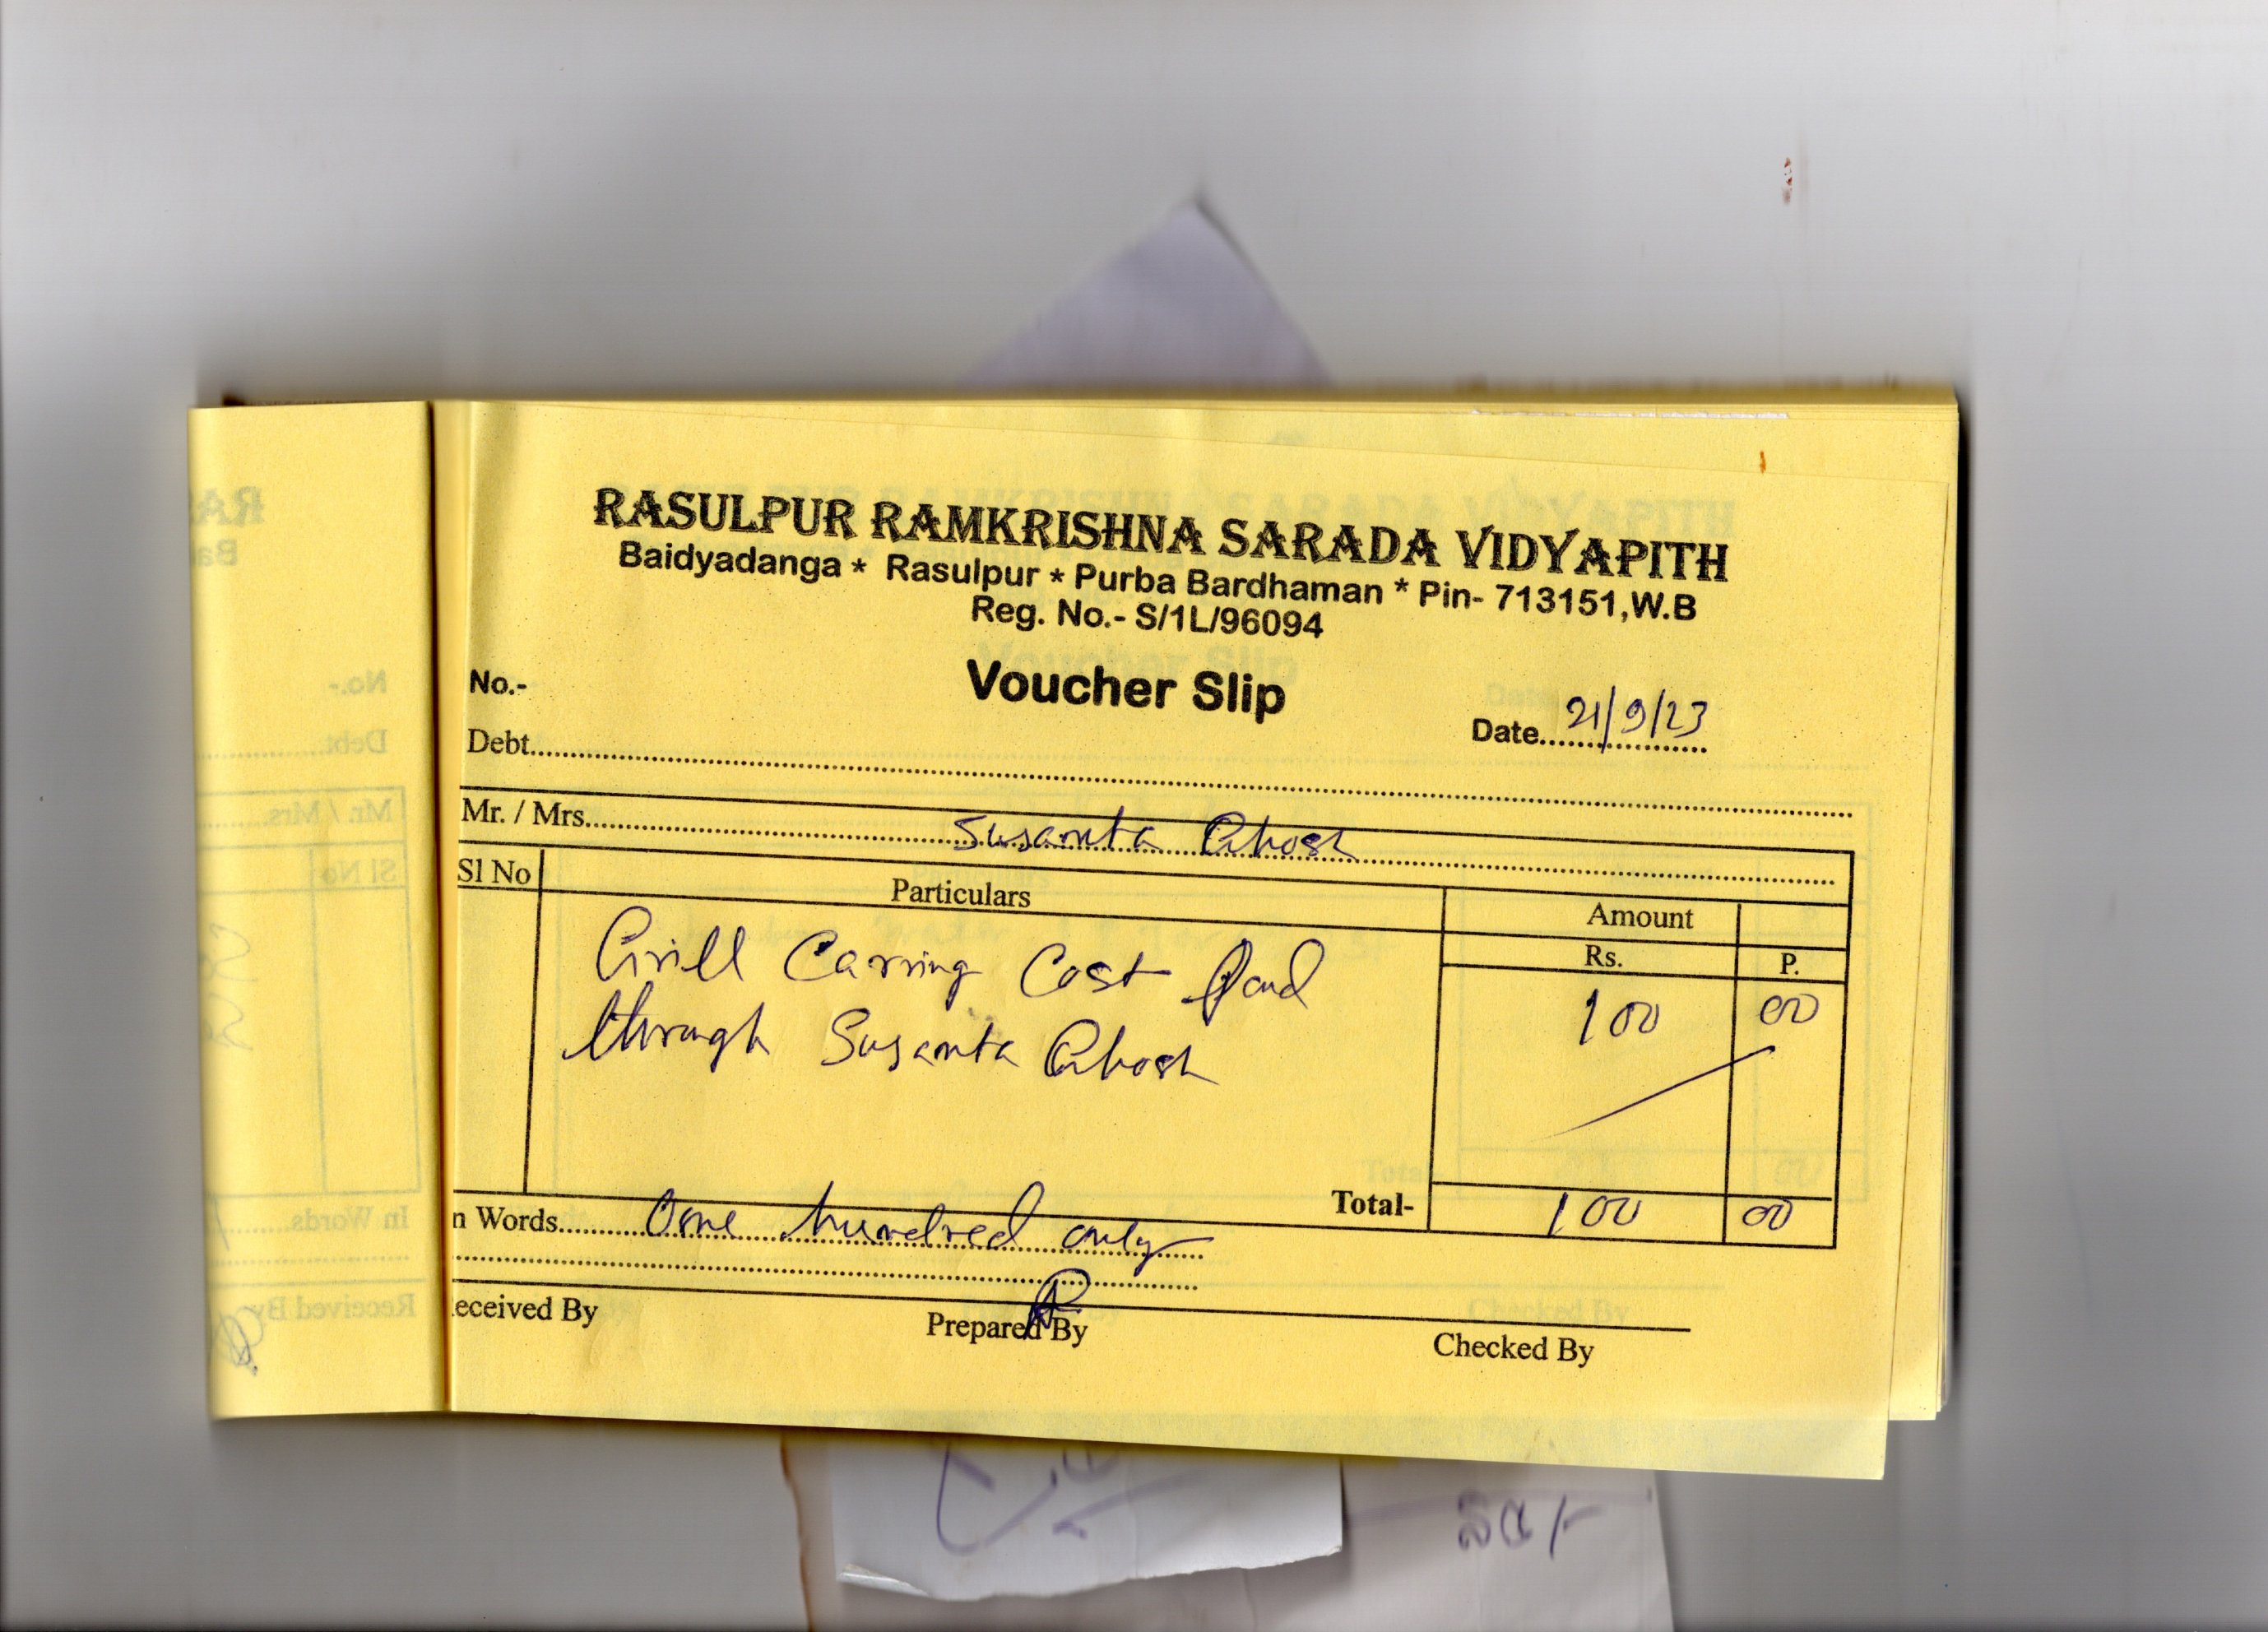 RASULPUR RAMKRISHNA SARADA VIDYAPITH
Baidyadanga * Rasulpur * Purba Bardhaman * Pin- 713151,W.B
Reg. No.- S/1L/96094
No.-
Voucher Slip
Date...... 21/9/23
Debt......
Mr. / Mrs...... Susanta Ghosh
Sl No Particulars Amount
Rs. P.
Grill Carring Cost Paid 100 00
through Susanta Ghosh
Total- 100 00
n Words...... One hundred only
eceived By Prepared By Checked By